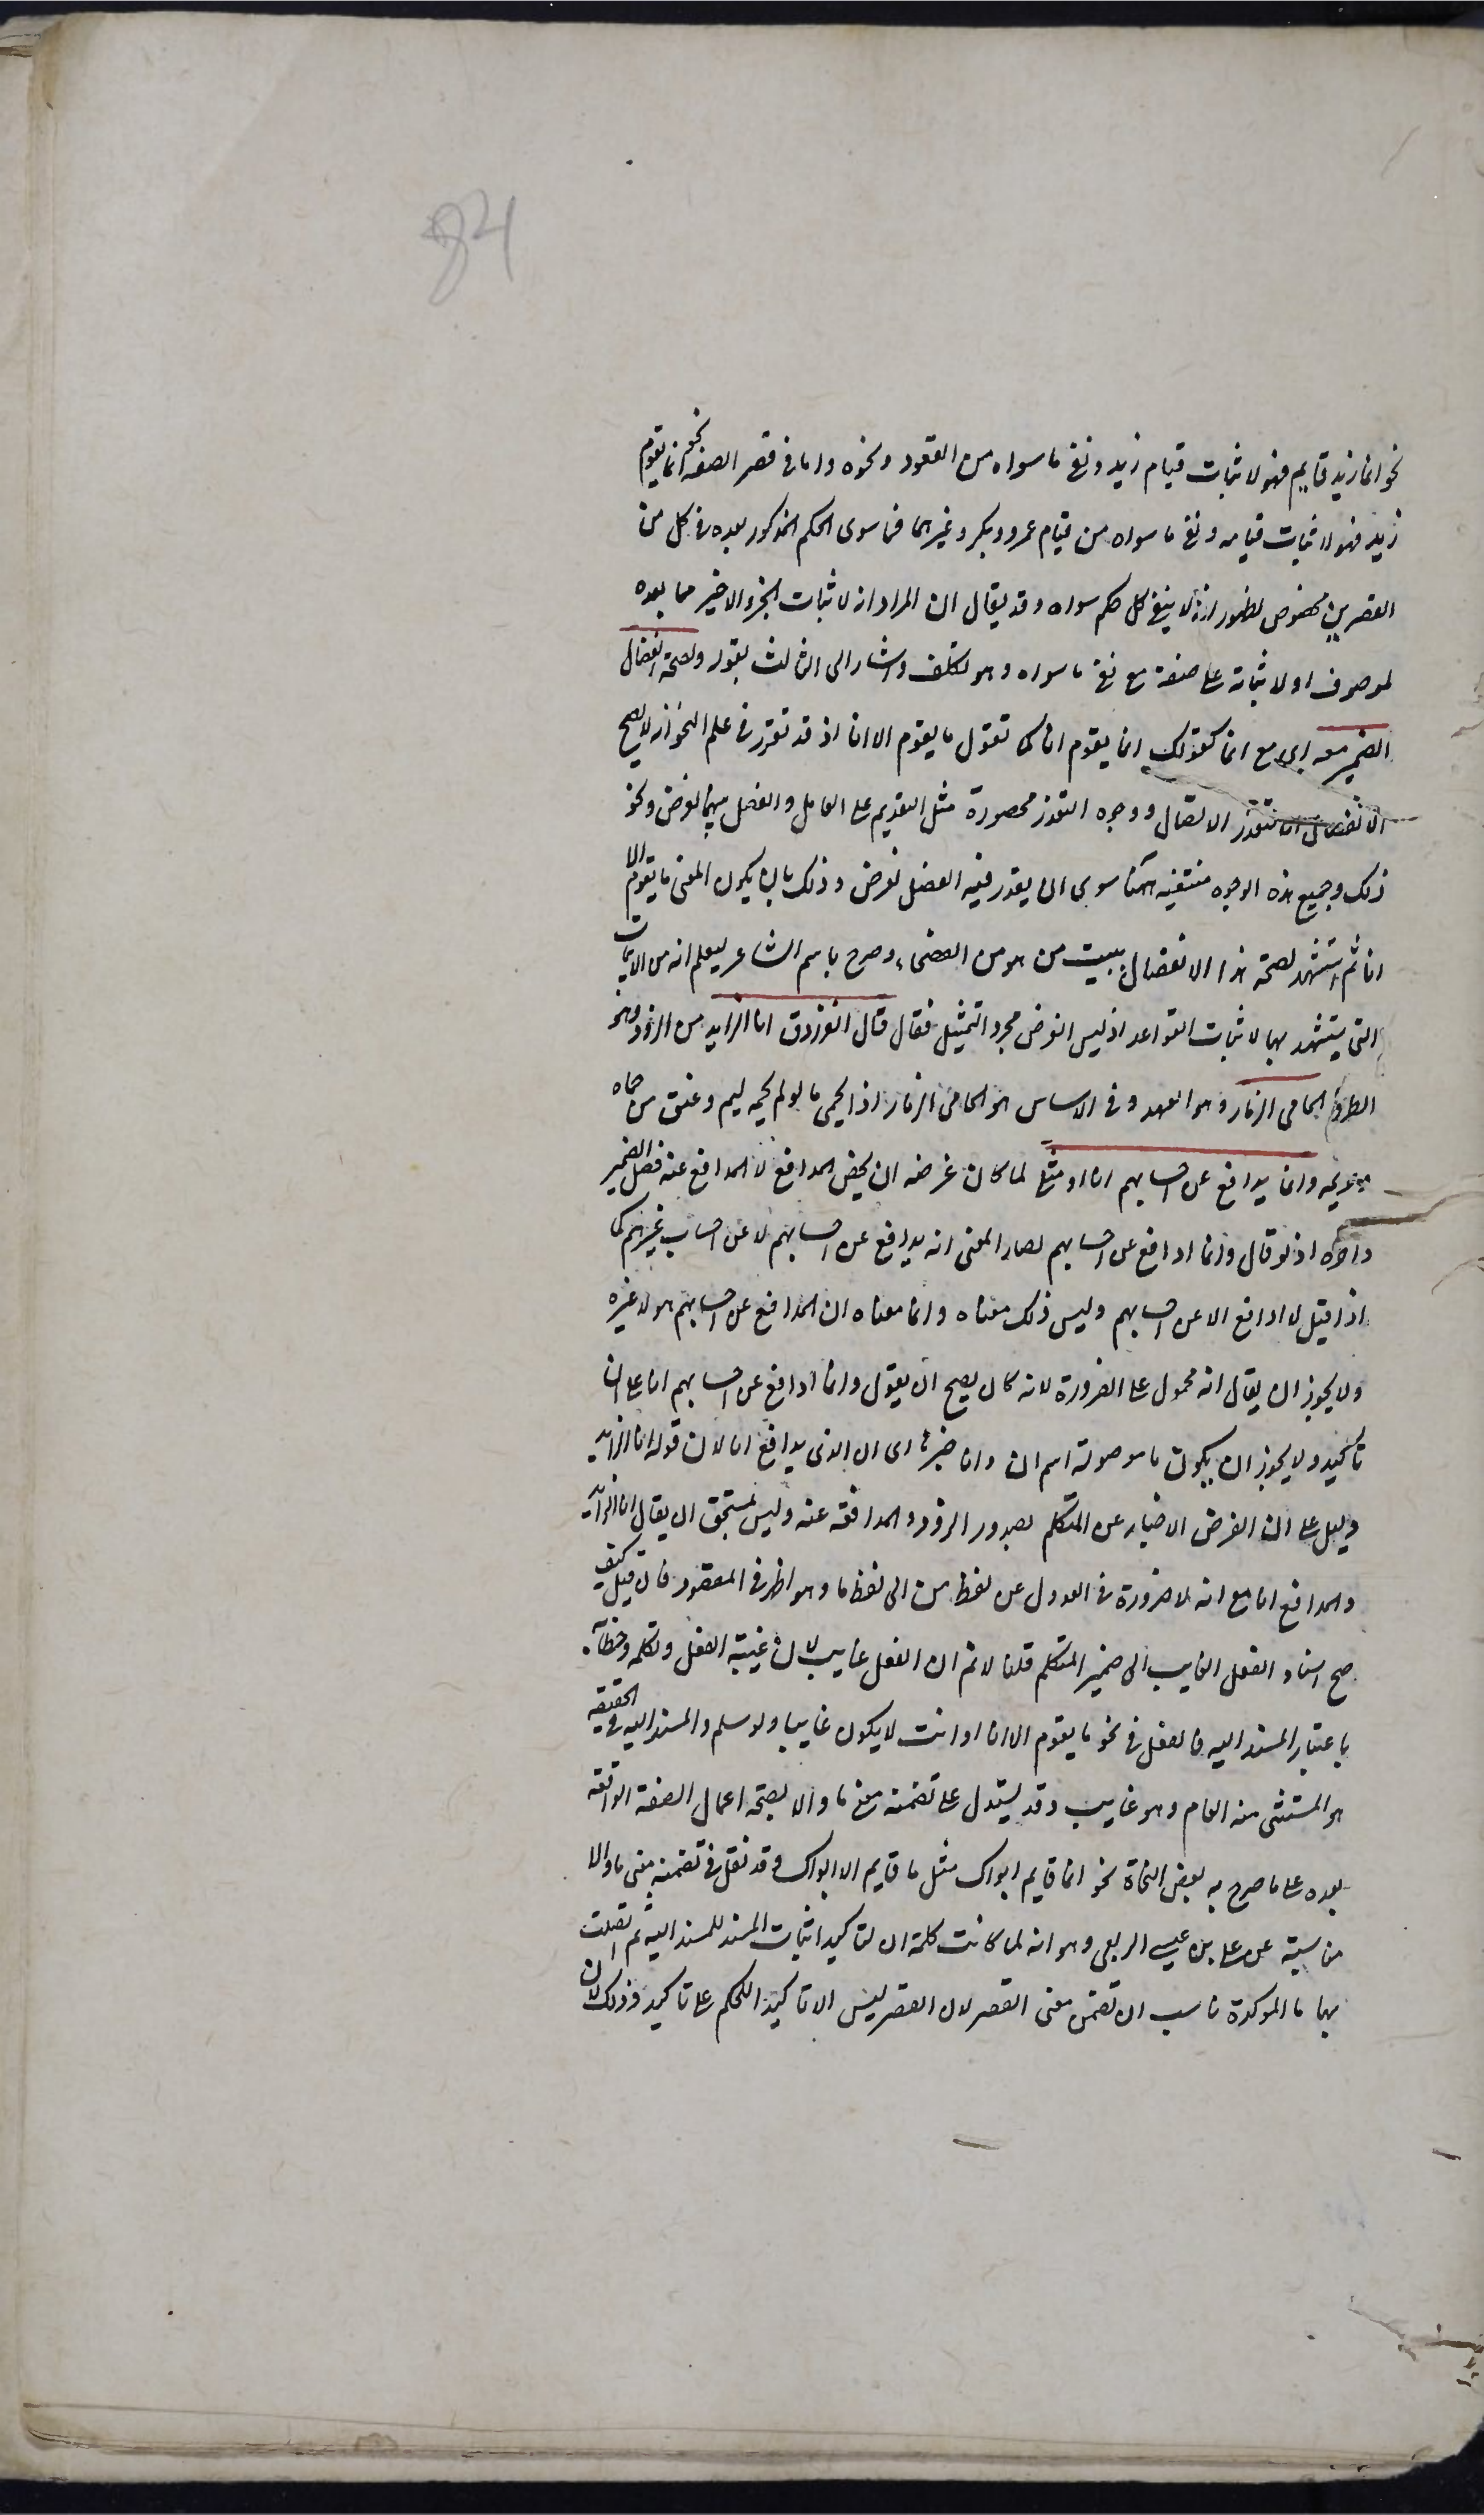 84
نحو انما زيد قايم فهو لاثبات قيام زيد و نفى ما سواه من القعود و نحوه و اما فى قصر الصفة نحو انما يقوم
زيد فهو لاثبات قيامه و نفى ما سواه من قيام عمرو و بكر و غيرهما فما سوى الحكم المذكور بعده فى كل من
القصرين مخصوص لظهور انه لا ينفى كل حكم سواه و قد يقال ان المراد انه لاثبات الجزء الاخير مما بعده
لموصوف او لاثباته على صفة مع نفى ما سواه و هو تكلف و اشار الى الثالث بقوله و لصحة انفصال
الضمير معه اى مع انما كقولك انما يقوم انا كما تقول ما يقوم الا انا اذ قد تقرر فى علم النحو انه لا يصح
الانفصال الا لتعذر الاتصال و وجوه التعذر محصورة مثل التقديم على العامل و الفصل بينهما لغرض و نحو
ذلك و جميع هذه الوجوه منتفية هنا سوى ان يقدر فيه الفصل لغرض و ذلك بان يكون المعنى ما يقوم الا
انا ثم استشهد لصحة هذا الانفصال ببيت من هو من الفصحاء و صرح باسم الشاعر ليعلم انه من الابيات
التى يستشهد بها لاثبات القواعد اذ ليس الغرض مجرد التمثيل فقال قال الفرزدق انا الزايد من الزود و هو
الطرد الحامى الزمار و هو العهد و فى الاساس هو الحامى الزمار اذا حمى ما لو لم يحمه ليم و عنف من حماه
و حريمه و انما يدافع عن احسابهم انا او مثلى لما كان غرضه ان يخص المدافع لا المدافع عنه فصل الضمير
و اخره اذ لو قال و انما ادافع عن احسابهم لصار المعنى انه يدافع عن احسابهم لا عن احساب غيرهم كما
اذا قيل لا ادافع الا عن احسابهم و ليس ذلك معناه و انما معناه ان المدافع عن احسابهم هو لا غيره
و لا يجوز ان يقال انه محمول على الضرورة لانه كان يصح ان يقول و انما ادافع عن احسابهم انا على ان
تاكيد و لا يجوز ان يكون ما موصولة اسم ان و انا خبرها اى ان الذى يدافع انا لان قوله انا الزايد
دليل على ان الغرض الاخبار عن المتكلم بصدور الزود و المدافعة عنه و ليس بمستحق ان يقال انا الزايد
و المدافع انا مع انه لا ضرورة فى العدول عن لفظ من الى لفظ ما و هو اظهر فى المقصود فان قيل كيف
صح اسناد الفعل الغايب الى ضمير المتكلم قلنا لا نم ان الفعل غايب لان غيبة الفعل و تكلمه و خطابه
باعتبار المسند اليه فالفعل فى نحو ما يقوم الا انا او انت لا يكون غايبا و لو سلم فالمسند اليه فى الحقيقة
هو المستثنى منه العام و هو غايب و قد يستدل على تضمنه معنى ما و الا بصحة اعمال الصفة الواقعة
بعده على ما صرح به بعض النحاة نحو انما قايم ابواك مثل ما قايم الا ابواك و قد نقل فى تضمنه معنى ما و الا
مناسبة عن على بن عيسى الربعى و هو انه لما كانت كلمة ان لتاكيد اثبات المسند للمسند اليه ثم اتصلت
بها ما الموكدة ناسب ان تضمن معنى القصر لان القصر ليس الا تاكيد الحكم على تاكيد و ذلك لان